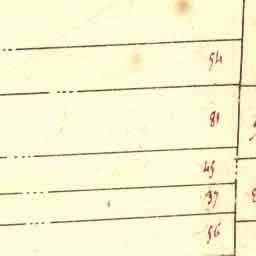 54
81
45
37
56